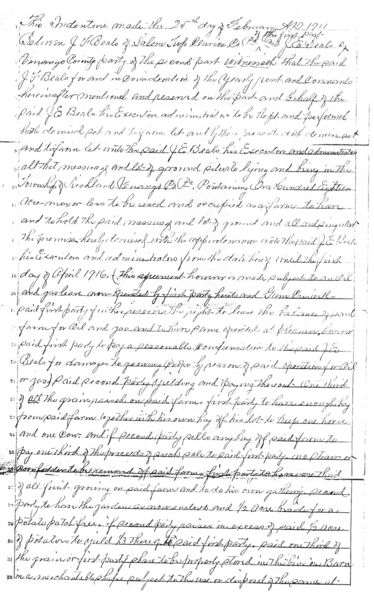 This Indenture made this 25th day of February A.D. 1911
of the first part
Between J. F. Beals of Salem Twp Clarion Co Pa and J. E. Beals of
Venango County party of the second part witnesseth that the said
J F Beals for and in Consideration of the Yearly rent and Covenants
hereinafter mentioned and reserved on the part and behalf of the
said J. E. Beals his Executors administrators to be Kept and performed
hath demised set and to farm let and by these presents doth demise set
and to farm let unto the said J. E Beals his Executors and administrators
all that messuage and lot of ground situate lying and being in the
Township of Richland Venango Co Pa. Containing One Hundred Eighteen
Acres more or less to be used and occupied as a farm to have
and to hold the said messuage and lot of ground and all and singular
the premises hereby demised with the appurtenances unto the said J. E Beals
his Executors and administrators from the date hereof until the first
day of April 1916. (this agreement however is made subject to an Oil
and gas lease now operated by first party heirs and
said first party further reserves the right to lease the balance of said
farm for Oil and gas and to have same operated at pleasure
said first party to pay a reasonable compensation to the said J E
Beals for damages to growing crops by reason of said operation for Oil
or gas) said second party yielding and paying thereout one third
of all the grain raised on said farm first party to have enough hay
from said farm together with his own hay of his lot to keep one horse
and one Cow and if second party sells any hay of said farm to
pay one third of the proceeds of such sale to said first party no straw or
corn fodder to be removed of said farm first party to have one third
of all fruit growing on said farm and to do his own gathering second
party to have the garden as now enclosed and 1/2 Acre ready for a
potato patch free if second party raises in excess of said 1/2 Acre
of potatoes to yield 1/3 thereof to said first party. said one third of
the grain or first partys share to be properly stored in the bins in Barn
in a merchantable shape subject to the use or disposal of the same at